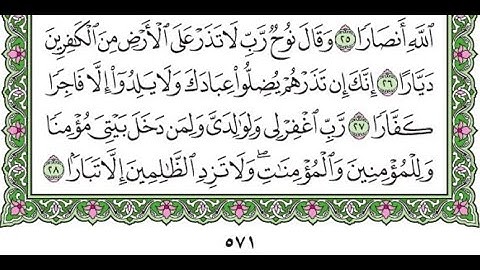 ٱللَّهِ أَنصَارًا ٢٥ وَقَالَ نُوحٌ رَّبِّ لَا تَذَرْ عَلَى ٱلْأَرْضِ مِنَ ٱلْكَٰفِرِينَ
دَيَّارًا ٢٦ إِنَّكَ إِن تَذَرْهُمْ يُضِلُّوا۟ عِبَادَكَ وَلَا يَلِدُوٓا۟ إِلَّا فَاجِرًا
كَفَّارًا ٢٧ رَّبِّ ٱغْفِرْ لِى وَلِوَٰلِدَىَّ وَلِمَن دَخَلَ بَيْتِىَ مُؤْمِنًا
وَلِلْمُؤْمِنِينَ وَٱلْمُؤْمِنَٰتِۖ وَلَا تَزِدِ ٱلظَّٰلِمِينَ إِلَّا تَبَارًۢا ٢٨
٥٧١